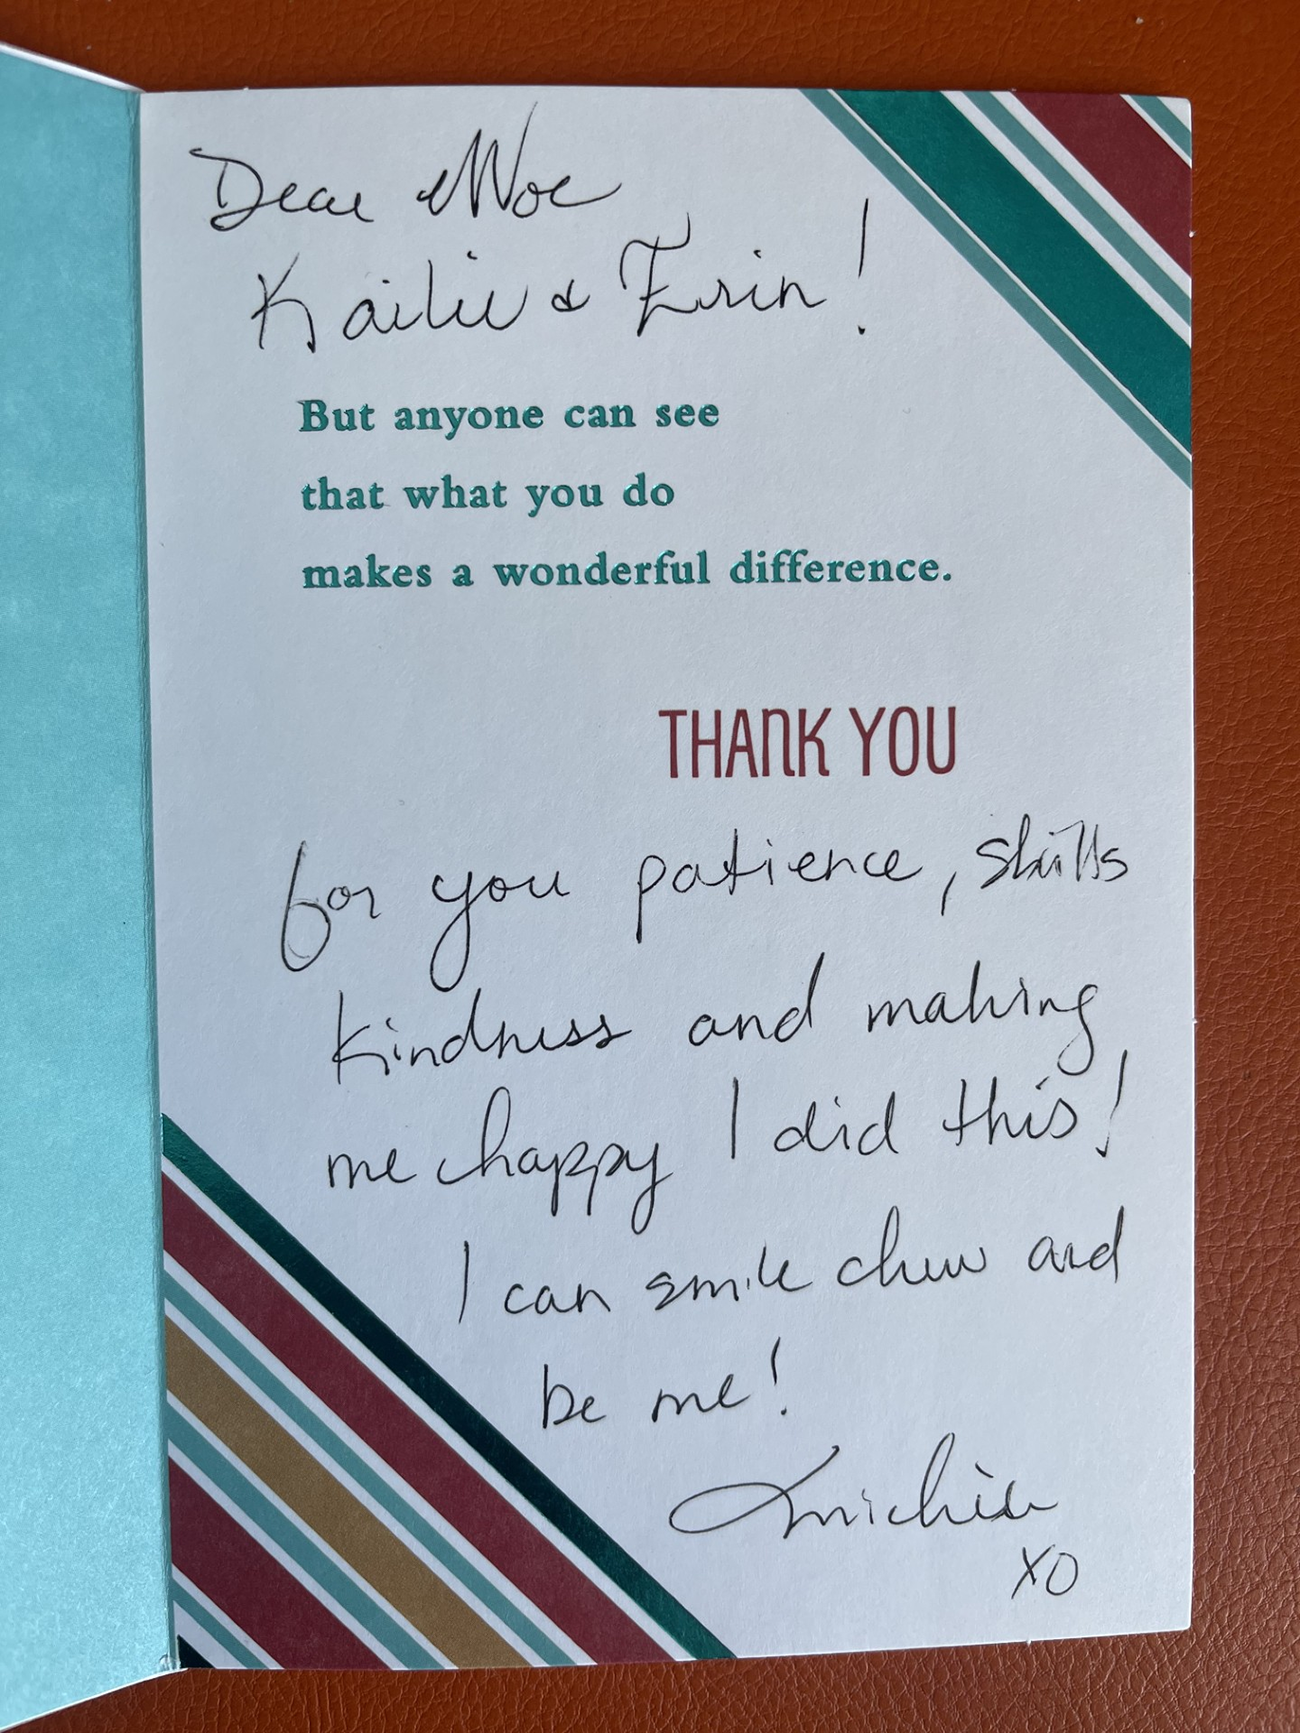 Dear Moe
Kailie & Erin!
But anyone can see
that what you do
makes a wonderful difference.
THANK YOU
for you patience, skills
kindness and making
me happy I did this!
I can smile chew and
be me!
XO